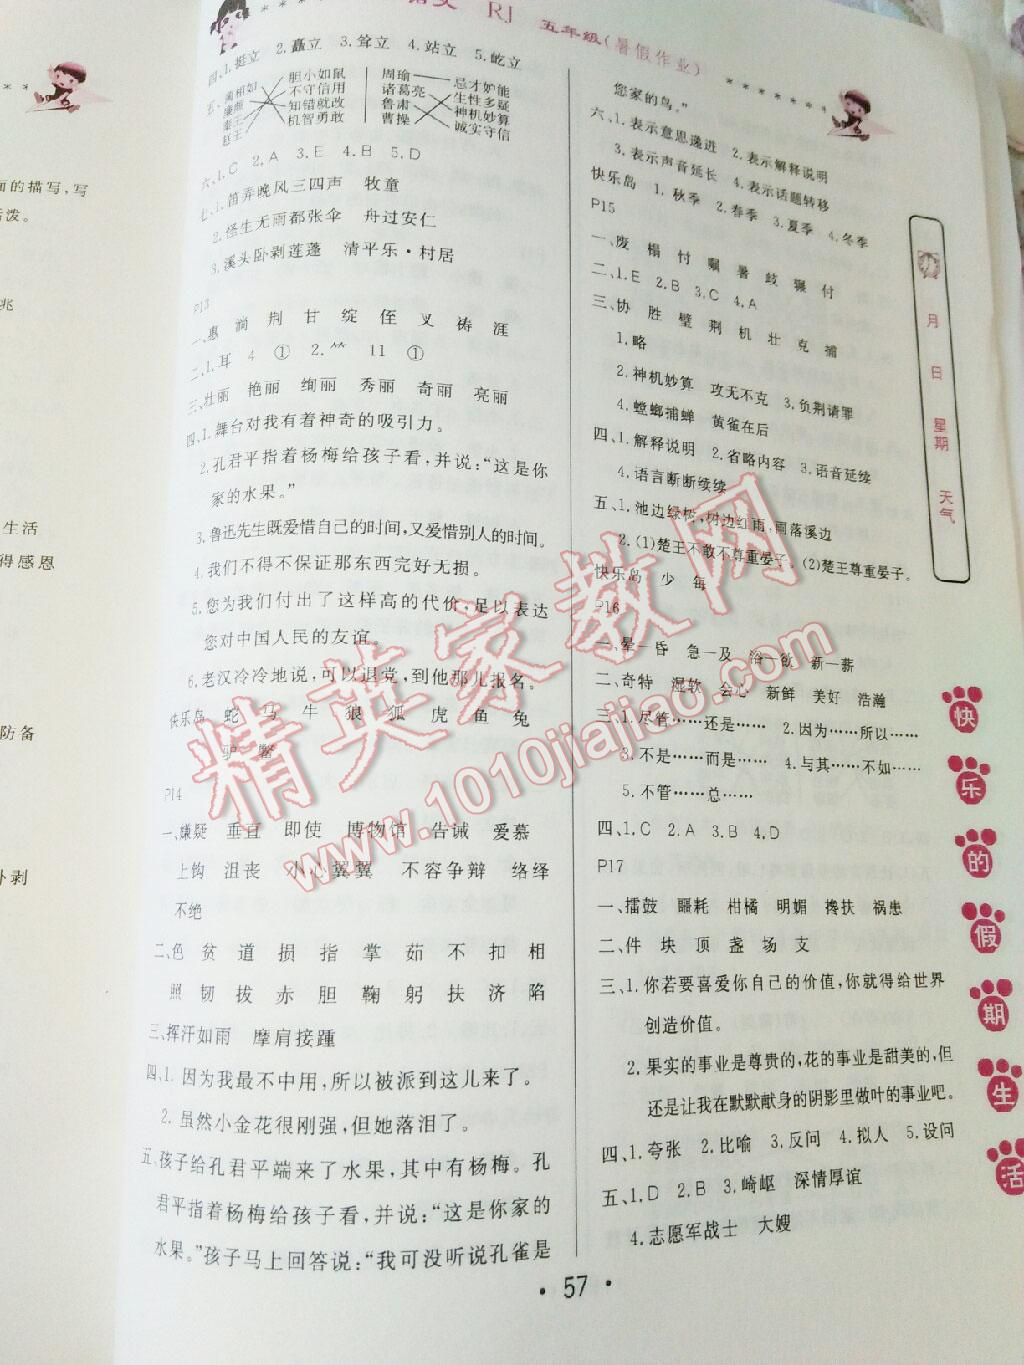 面的描写,写
活泼。
兆
生活
得得感恩
防备
卜剥
语文 RJ 五年级(暑假作业)
四、1.挺立 2.矗立 3.耸立 4.站立 5.屹立
五、蔺相如 胆小如鼠 周瑜 忌才妒能
廉颇 不守信用 诸葛亮 生性多疑
秦王 知错就改 鲁肃 神机妙算
赵王 机智勇敢 曹操 诚实守信
六、1.C 2.A 3.E 4.B 5.D
七、1.笛弄晚风三四声 牧童
2.怪生无雨都张伞 舟过安仁
3.溪头卧剥莲蓬 清平乐·村居
P13
一、惠 淌 荆 甘 绽 侄 叉 祷 涯
二、1.耳 4 ① 2.⺮ 11 ①
三、壮丽 艳丽 绚丽 秀丽 奇丽 亮丽
四、1.舞台对我有着神奇的吸引力。
2.孔君平指着杨梅给孩子看,并说:“这是你
家的水果。”
3.鲁迅先生既爱惜自己的时间,又爱惜别人的时间。
4.我们不得不保证那东西完好无损。
5.您为我们付出了这样高的代价,足以表达
您对中国人民的友谊。
6.老汉冷冷地说,可以退党,到他那儿报名。
快乐岛 蛇 马 牛 狼 狐 虎 鱼 兔
驴 鳖
P14
一、嫌疑 垂直 即使 博物馆 告诫 爱慕
上钩 沮丧 小心翼翼 不容争辩 络绎
不绝
二、色 贫 道 损 指 掌 茹 不 扣 相
照 韧 拔 赤 胆 鞠 躬 扶 济 陷
三、挥汗如雨 摩肩接踵
四、1.因为我最不中用,所以被派到这儿来了。
2.虽然小金花很刚强,但她落泪了。
五、孩子给孔君平端来了水果,其中有杨梅。孔
君平指着杨梅给孩子看,并说:“这是你家的
水果。”孩子马上回答说:“我可没听说孔雀是
您家的鸟。”
六、1.表示意思递进 2.表示解释说明
3.表示声音延长 4.表示话题转移
快乐岛 1.秋季 2.春季 3.夏季 4.冬季
P15
一、废 榻 忖 瞩 暑 歧 辗 付
二、1.E 2.B 3.C 4.A
三、协 胜 璧 荆 机 壮 克 捕
1.略
2.神机妙算 攻无不克 3.负荆请罪
4.螳螂捕蝉 黄雀在后
四、1.解释说明 2.省略内容 3.语音延续
4.语言断断续续
五、1.池边绿树,树边红雨,雨落溪边
2.(1)楚王不敢不尊重晏子。(2)楚王尊重晏子。
快乐岛 少 每
P16
一、晕一昏 急一及 浴一欲 新一薪
二、奇特 湿软 会心 新鲜 美好 浩瀚
三、1.尽管……还是…… 2.因为……所以……
3.不是……而是…… 4.与其……不如……
5.不管……总……
四、1.C 2.A 3.B 4.D
P17
一、擂鼓 噩耗 柑橘 明媚 搀扶 祸患
二、件 块 顶 盏 场 支
三、1.你若要喜爱你自己的价值,你就得给世界
创造价值。
2.果实的事业是尊贵的,花的事业是甜美的,但
还是让我在默默献身的阴影里做叶的事业吧。
四、1.夸张 2.比喻 3.反问 4.拟人 5.设问
五、1.D 2.B 3.崎岖 深情厚谊
4.志愿军战士 大嫂
月 日 星期 天气
快乐的假期生活
· 57 ·
精英家教网
www.1010jiajiao.com